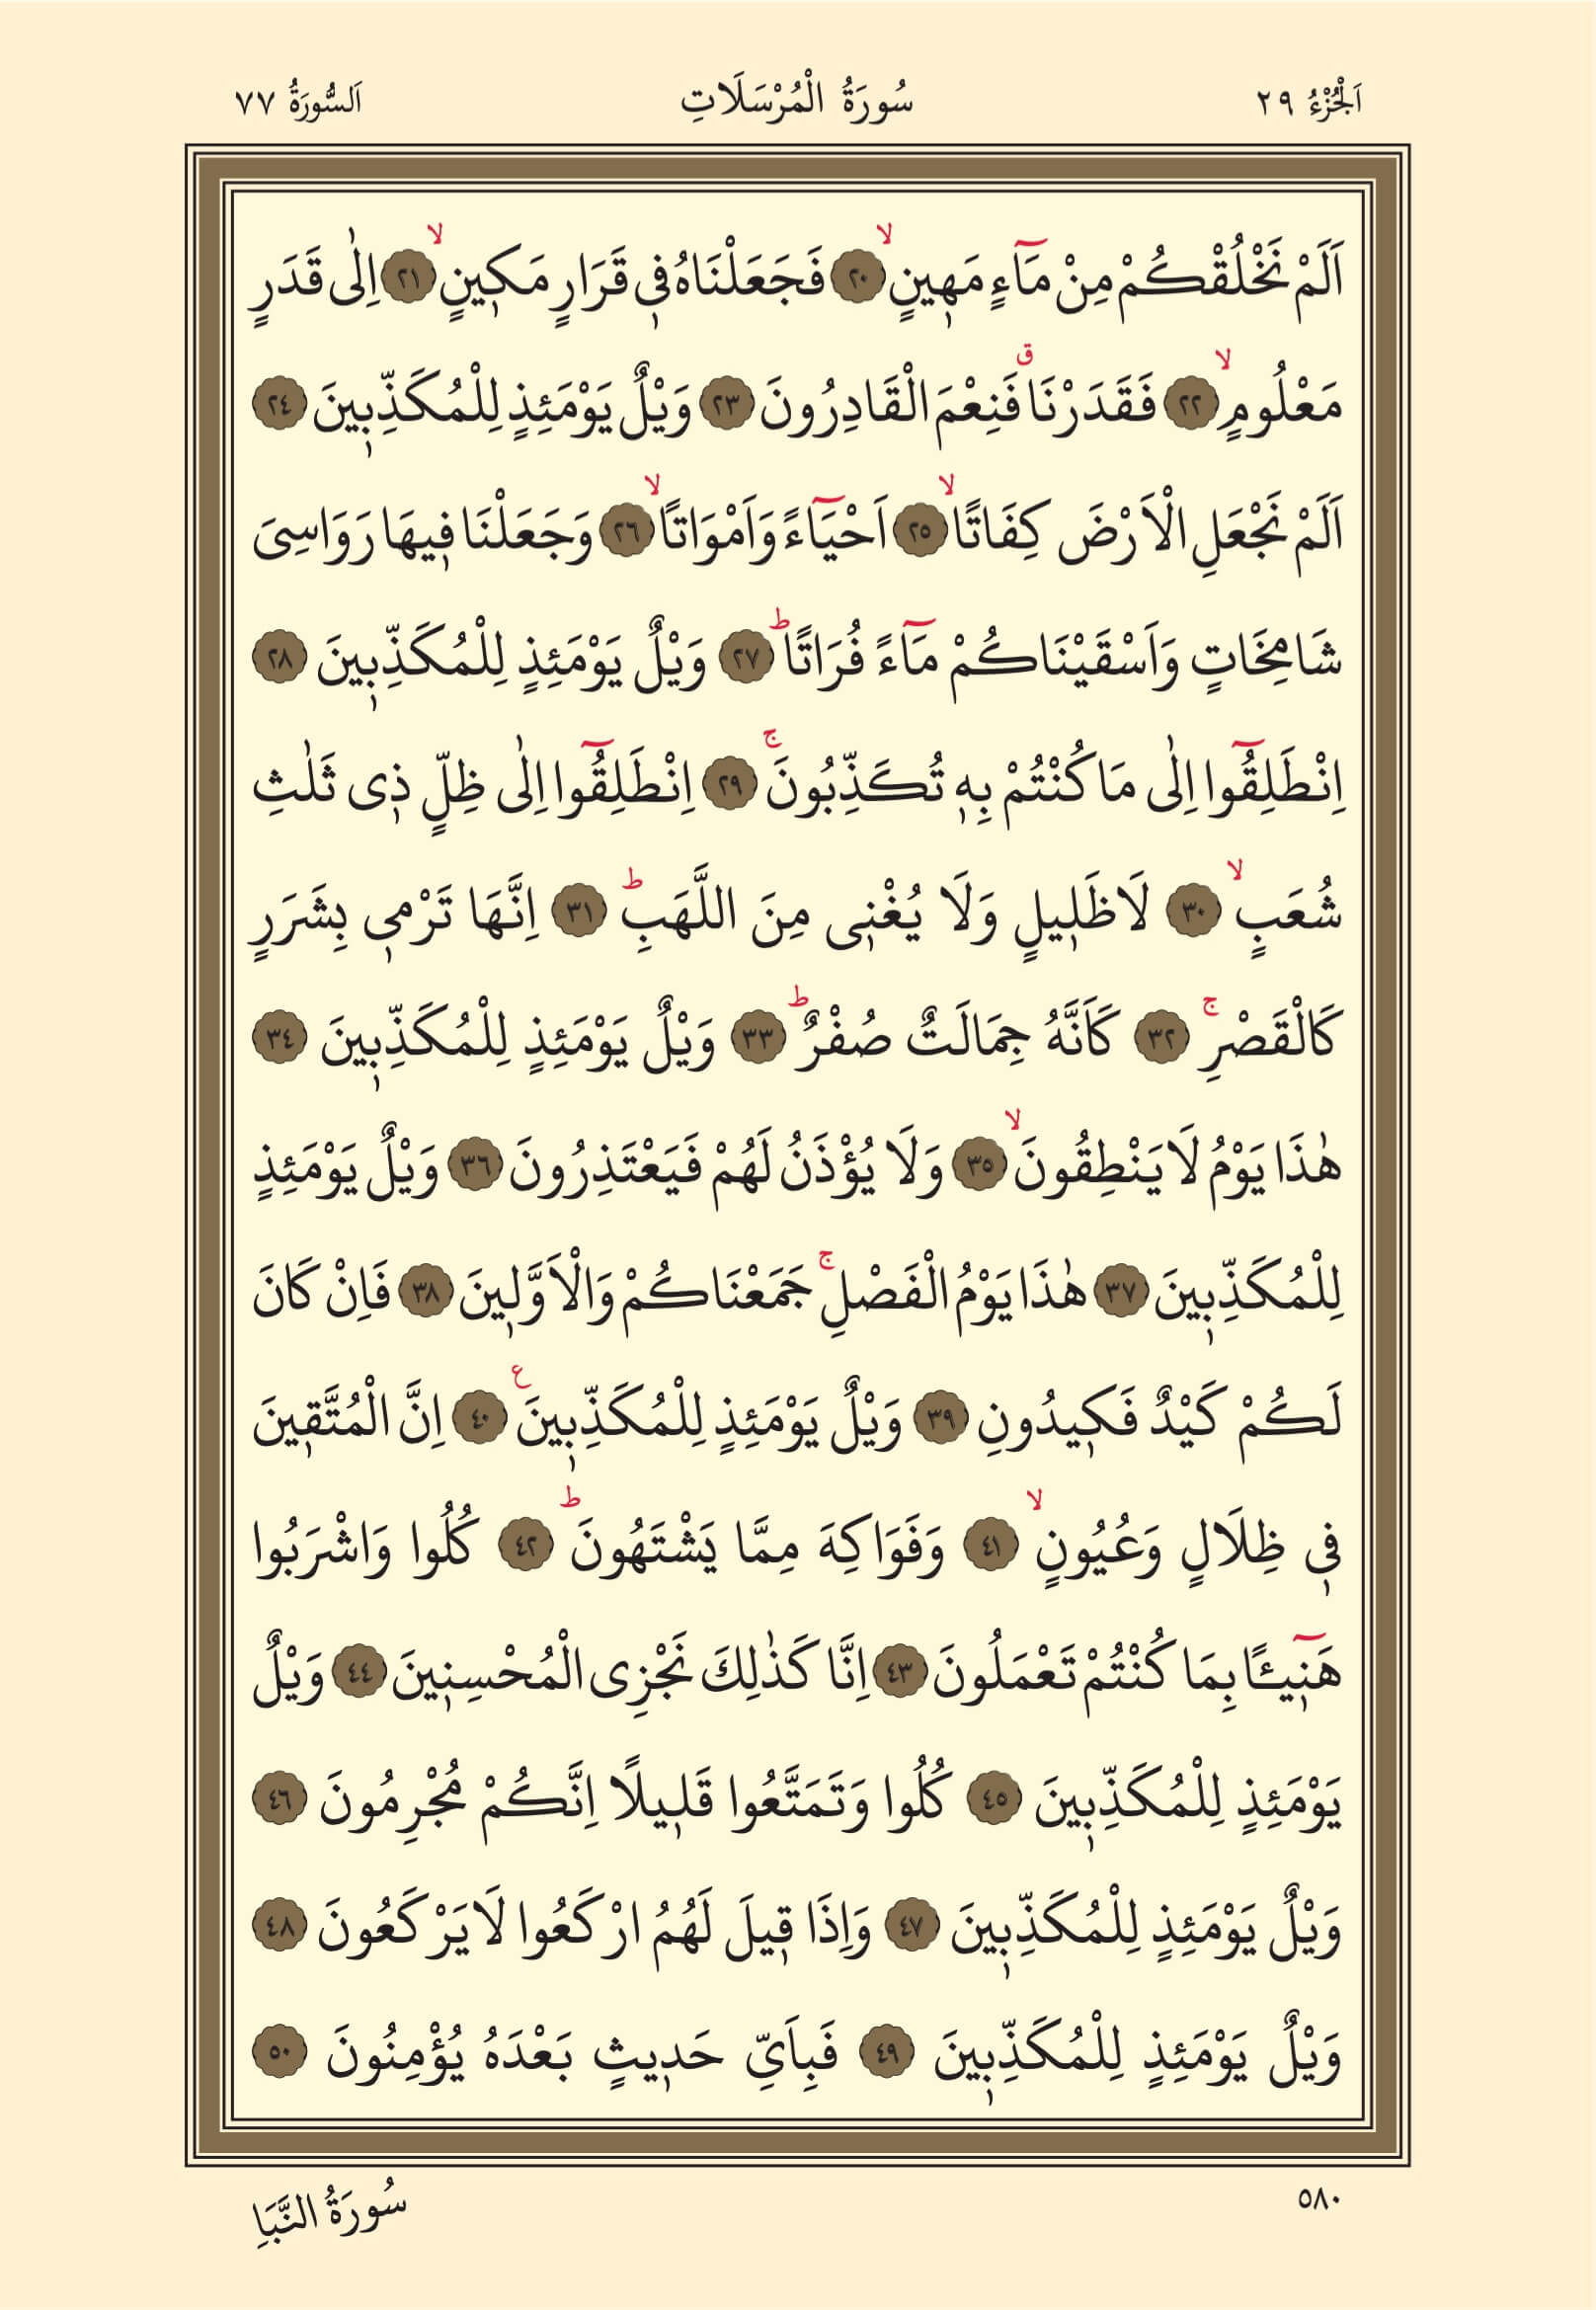 اَلْجُزْءُ ٢٩ سُورَةُ الْمُرْسَلَاتِ اَلسُّورَةُ ٧٧
اَلَمْ نَخْلُقْكُمْ مِنْ مَٓاءٍ مَه۪ينٍۙ ٢٠ فَجَعَلْنَاهُ ف۪ي قَرَارٍ مَك۪ينٍۙ ٢١ اِلٰى قَدَرٍ
مَعْلُومٍۙ ٢٢ فَقَدَرْنَاۗ فَنِعْمَ الْقَادِرُونَ ٢٣ وَيْلٌ يَوْمَئِذٍ لِلْمُكَذِّب۪ينَ ٢٤
اَلَمْ نَجْعَلِ الْاَرْضَ كِفَاتًاۙ ٢٥ اَحْيَٓاءً وَاَمْوَاتًاۙ ٢٦ وَجَعَلْنَا ف۪يهَا رَوَاسِيَ
شَامِخَاتٍ وَاَسْقَيْنَاكُمْ مَٓاءً فُرَاتًاۜ ٢٧ وَيْلٌ يَوْمَئِذٍ لِلْمُكَذِّب۪ينَ ٢٨
اِنْطَلِقُٓوا اِلٰى مَا كُنْتُمْ بِه۪ تُكَذِّبُونَۚ ٢٩ اِنْطَلِقُٓوا اِلٰى ظِلٍّ ذ۪ي ثَلٰثِ
شُعَبٍۙ ٣٠ لَا ظَل۪يلٍ وَلَا يُغْن۪ي مِنَ اللَّهَبِۜ ٣١ اِنَّهَا تَرْم۪ي بِشَرَرٍ
كَالْقَصْرِۚ ٣٢ كَاَنَّهُ جِمَالَتٌ صُفْرٌۜ ٣٣ وَيْلٌ يَوْمَئِذٍ لِلْمُكَذِّب۪ينَ ٣٤
هٰذَا يَوْمُ لَا يَنْطِقُونَۙ ٣٥ وَلَا يُؤْذَنُ لَهُمْ فَيَعْتَذِرُونَ ٣٦ وَيْلٌ يَوْمَئِذٍ
لِلْمُكَذِّب۪ينَ ٣٧ هٰذَا يَوْمُ الْفَصْلِۚ جَمَعْنَاكُمْ وَالْاَوَّل۪ينَ ٣٨ فَاِنْ كَانَ
لَكُمْ كَيْدٌ فَك۪يدُونِ ٣٩ وَيْلٌ يَوْمَئِذٍ لِلْمُكَذِّب۪ينَ ع ٤٠ اِنَّ الْمُتَّق۪ينَ
ف۪ي ظِلَالٍ وَعُيُونٍۙ ٤١ وَفَوَاكِهَ مِمَّا يَشْتَهُونَۜ ٤٢ كُلُوا وَاشْرَبُوا
هَن۪ٓيـًٔا بِمَا كُنْتُمْ تَعْمَلُونَ ٤٣ اِنَّا كَذٰلِكَ نَجْزِي الْمُحْسِن۪ينَ ٤٤ وَيْلٌ
يَوْمَئِذٍ لِلْمُكَذِّب۪ينَ ٤٥ كُلُوا وَتَمَتَّعُوا قَل۪يلًا اِنَّكُمْ مُجْرِمُونَ ٤٦
وَيْلٌ يَوْمَئِذٍ لِلْمُكَذِّب۪ينَ ٤٧ وَاِذَا ق۪يلَ لَهُمُ ارْكَعُوا لَا يَرْكَعُونَ ٤٨
وَيْلٌ يَوْمَئِذٍ لِلْمُكَذِّب۪ينَ ٤٩ فَبِاَيِّ حَد۪يثٍ بَعْدَهُ يُؤْمِنُونَ ٥٠
٥٨٠ سُورَةُ النَّبَاِ